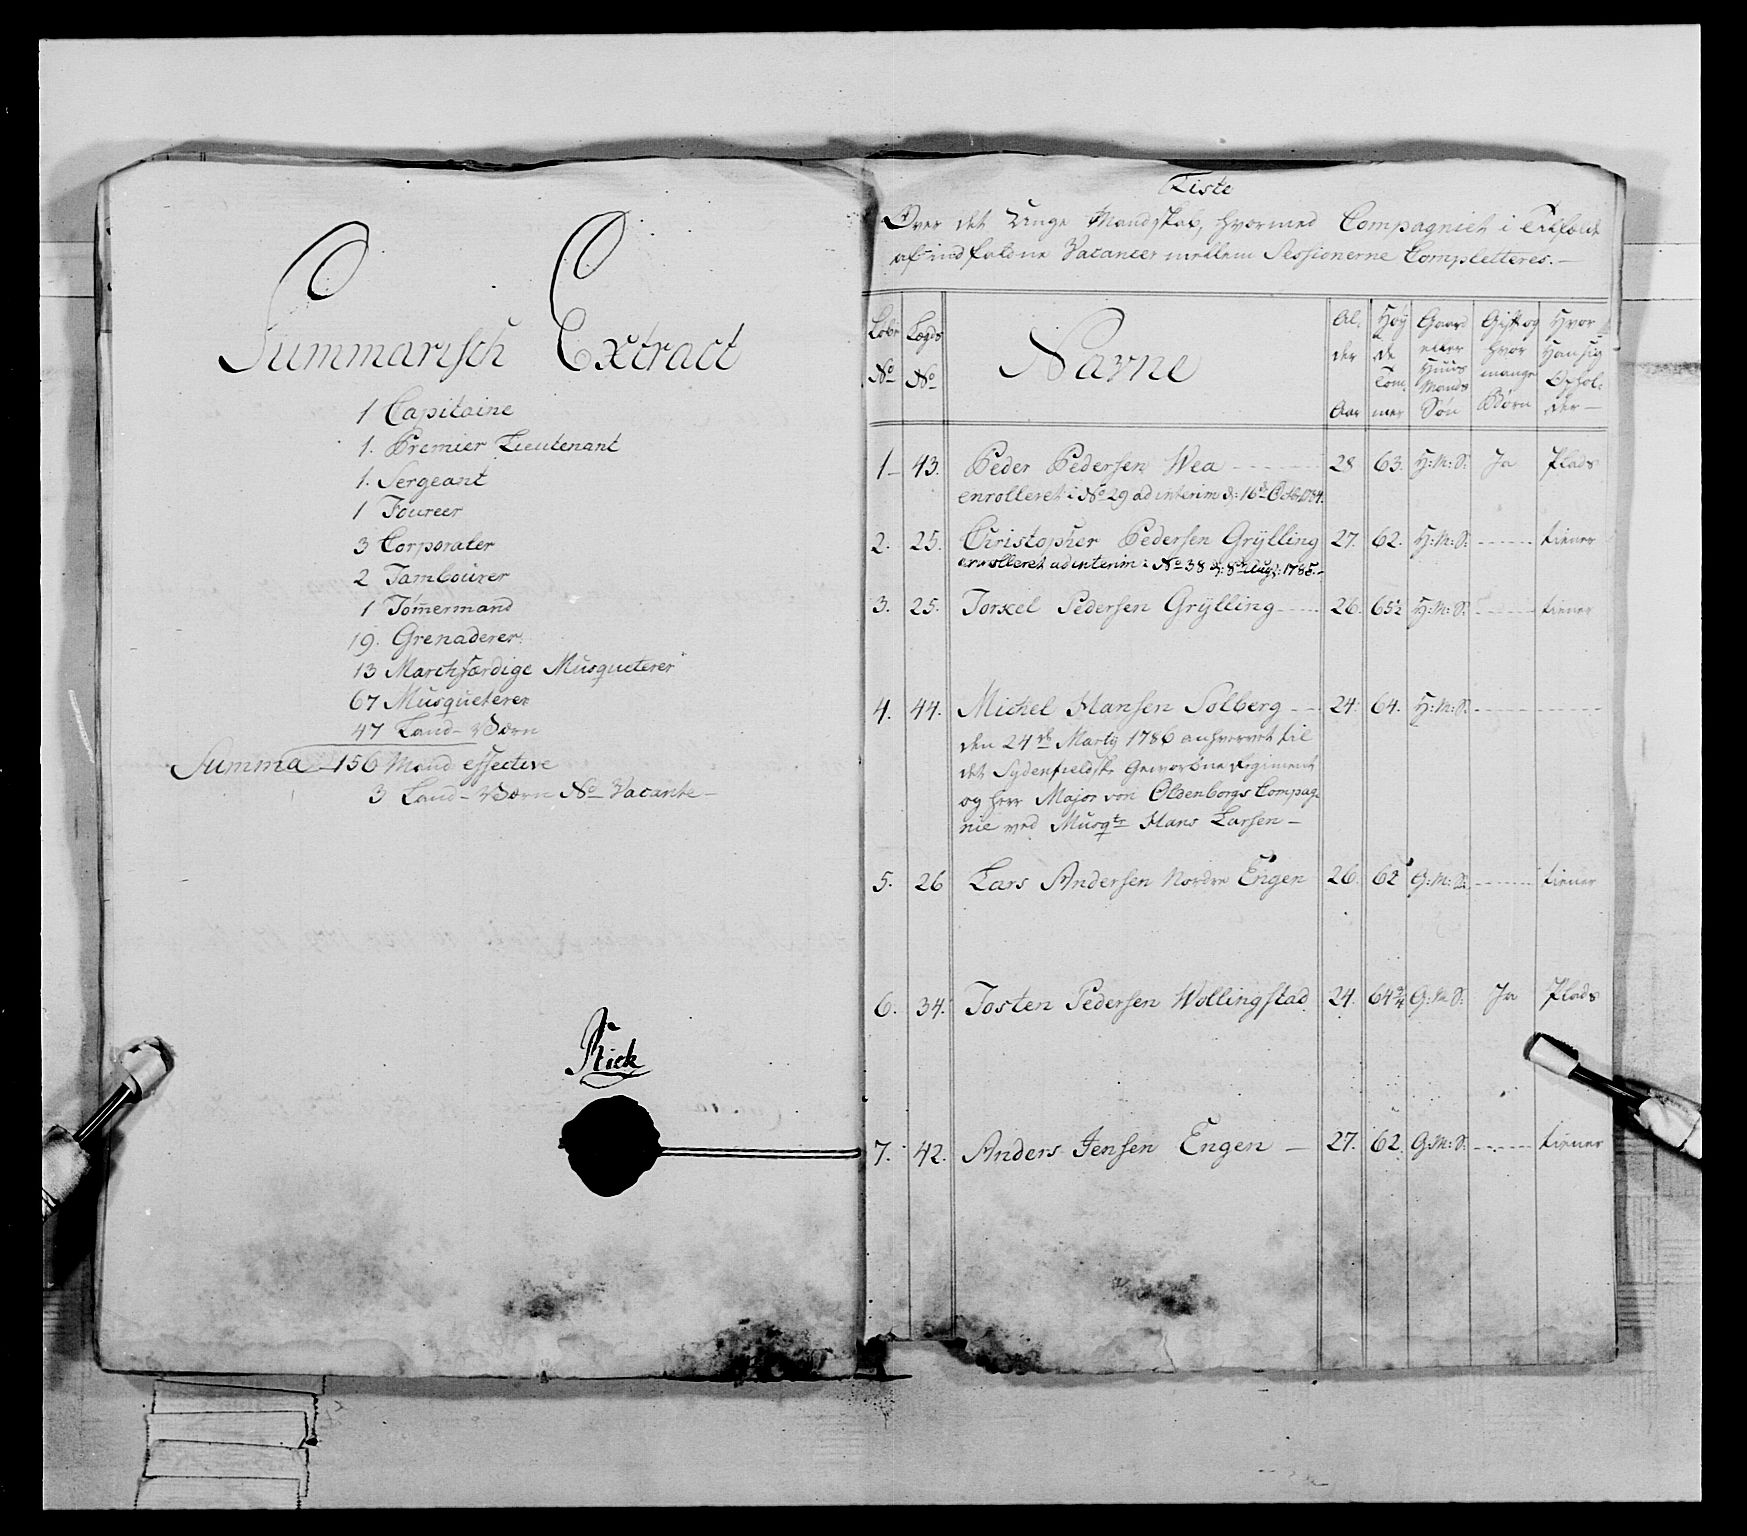 Summarisch Extract
1 Capitaine
1. Premier Lieutenant
1. Sergeant
1 Foureer
3 Corporaler
2 Tambourer
1 Tømermand
19. Grenaderer
13 Marchfærdige Musqueterer
67 Musqueterer
47 Land-Værn
Summa 156 Mand effective
3 Land-Værn No Vacante
Rick
Liste
Over det Unge Mandskab, hvormed Compagniet i Tilfælde
af indfaldne Vacancer mellem Sessionerne Completteres.
Løbe No
Lægds No
Navne
Alder Aar
Høyde Tommer
Gaard eller Huus Mands Søn
Gift og hvor mange Børn
Hvor Han sig Ophol: der
1 43. Peder Pedersen Wea 28 63. H:M:S: Ja Plads
enrolleret i No 29 ad interim d: 16de Octb: 1784.
2. 25. Christopher Pedersen Grÿlling 27. 62. H:M:S: tiener
enrolleret ad interim i No 38 d: 8de Aug: 1785.
3. 25. Torkel Pedersen Grÿlling 26. 65½ H:M:S: tiener
4. 44. Michel Hansen Solberg 24. 64. H:M:S:
den 24de Martÿ 1786 anhvervet til
det Sydenfieldske Gevorbne Regiment
og Herr Major von Oldenborgs Compag
nie ved Musqtr Hans Larsen
5. 26 Lars Andersen Nordre Engen 26. 62 G:M:S: tiener
6. 34. Josten Pedersen Wollingstad 24. 64¾ G:M:S: Ja Plads
7. 42. Anders Jensen Engen 27. 62. G:M:S: tiener